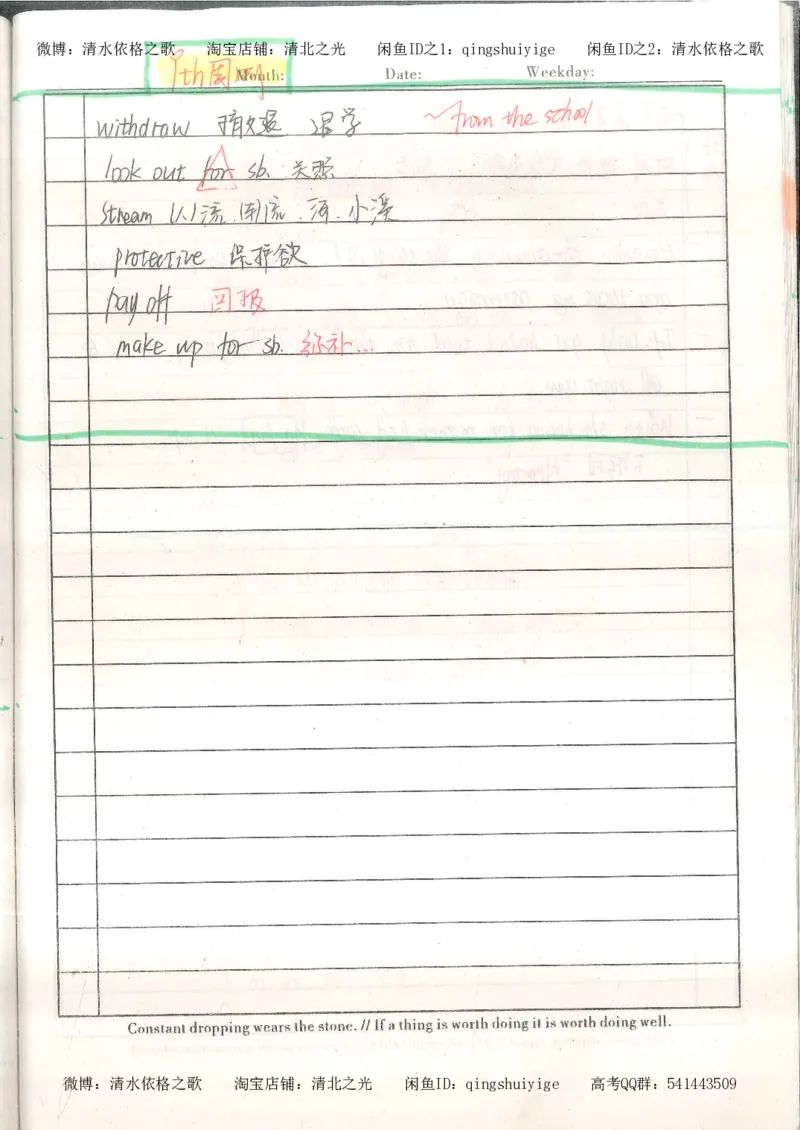 微博：清水依格之歌 淘宝店铺：清北之光 闲鱼ID之1：qingshuiyige 闲鱼ID之2：清水依格之歌
Month: Date: Weekday:
withdraw 撤退 退学 ~from the school
look out for sb. 关照
stream (人)流.(车)流.河.小溪
protective 保护欲
pay off 回报
make up for sb. 弥补...
Constant dropping wears the stone. // If a thing is worth doing it is worth doing well.
微博：清水依格之歌 淘宝店铺：清北之光 闲鱼ID：qingshuiyige 高考QQ群：541443509